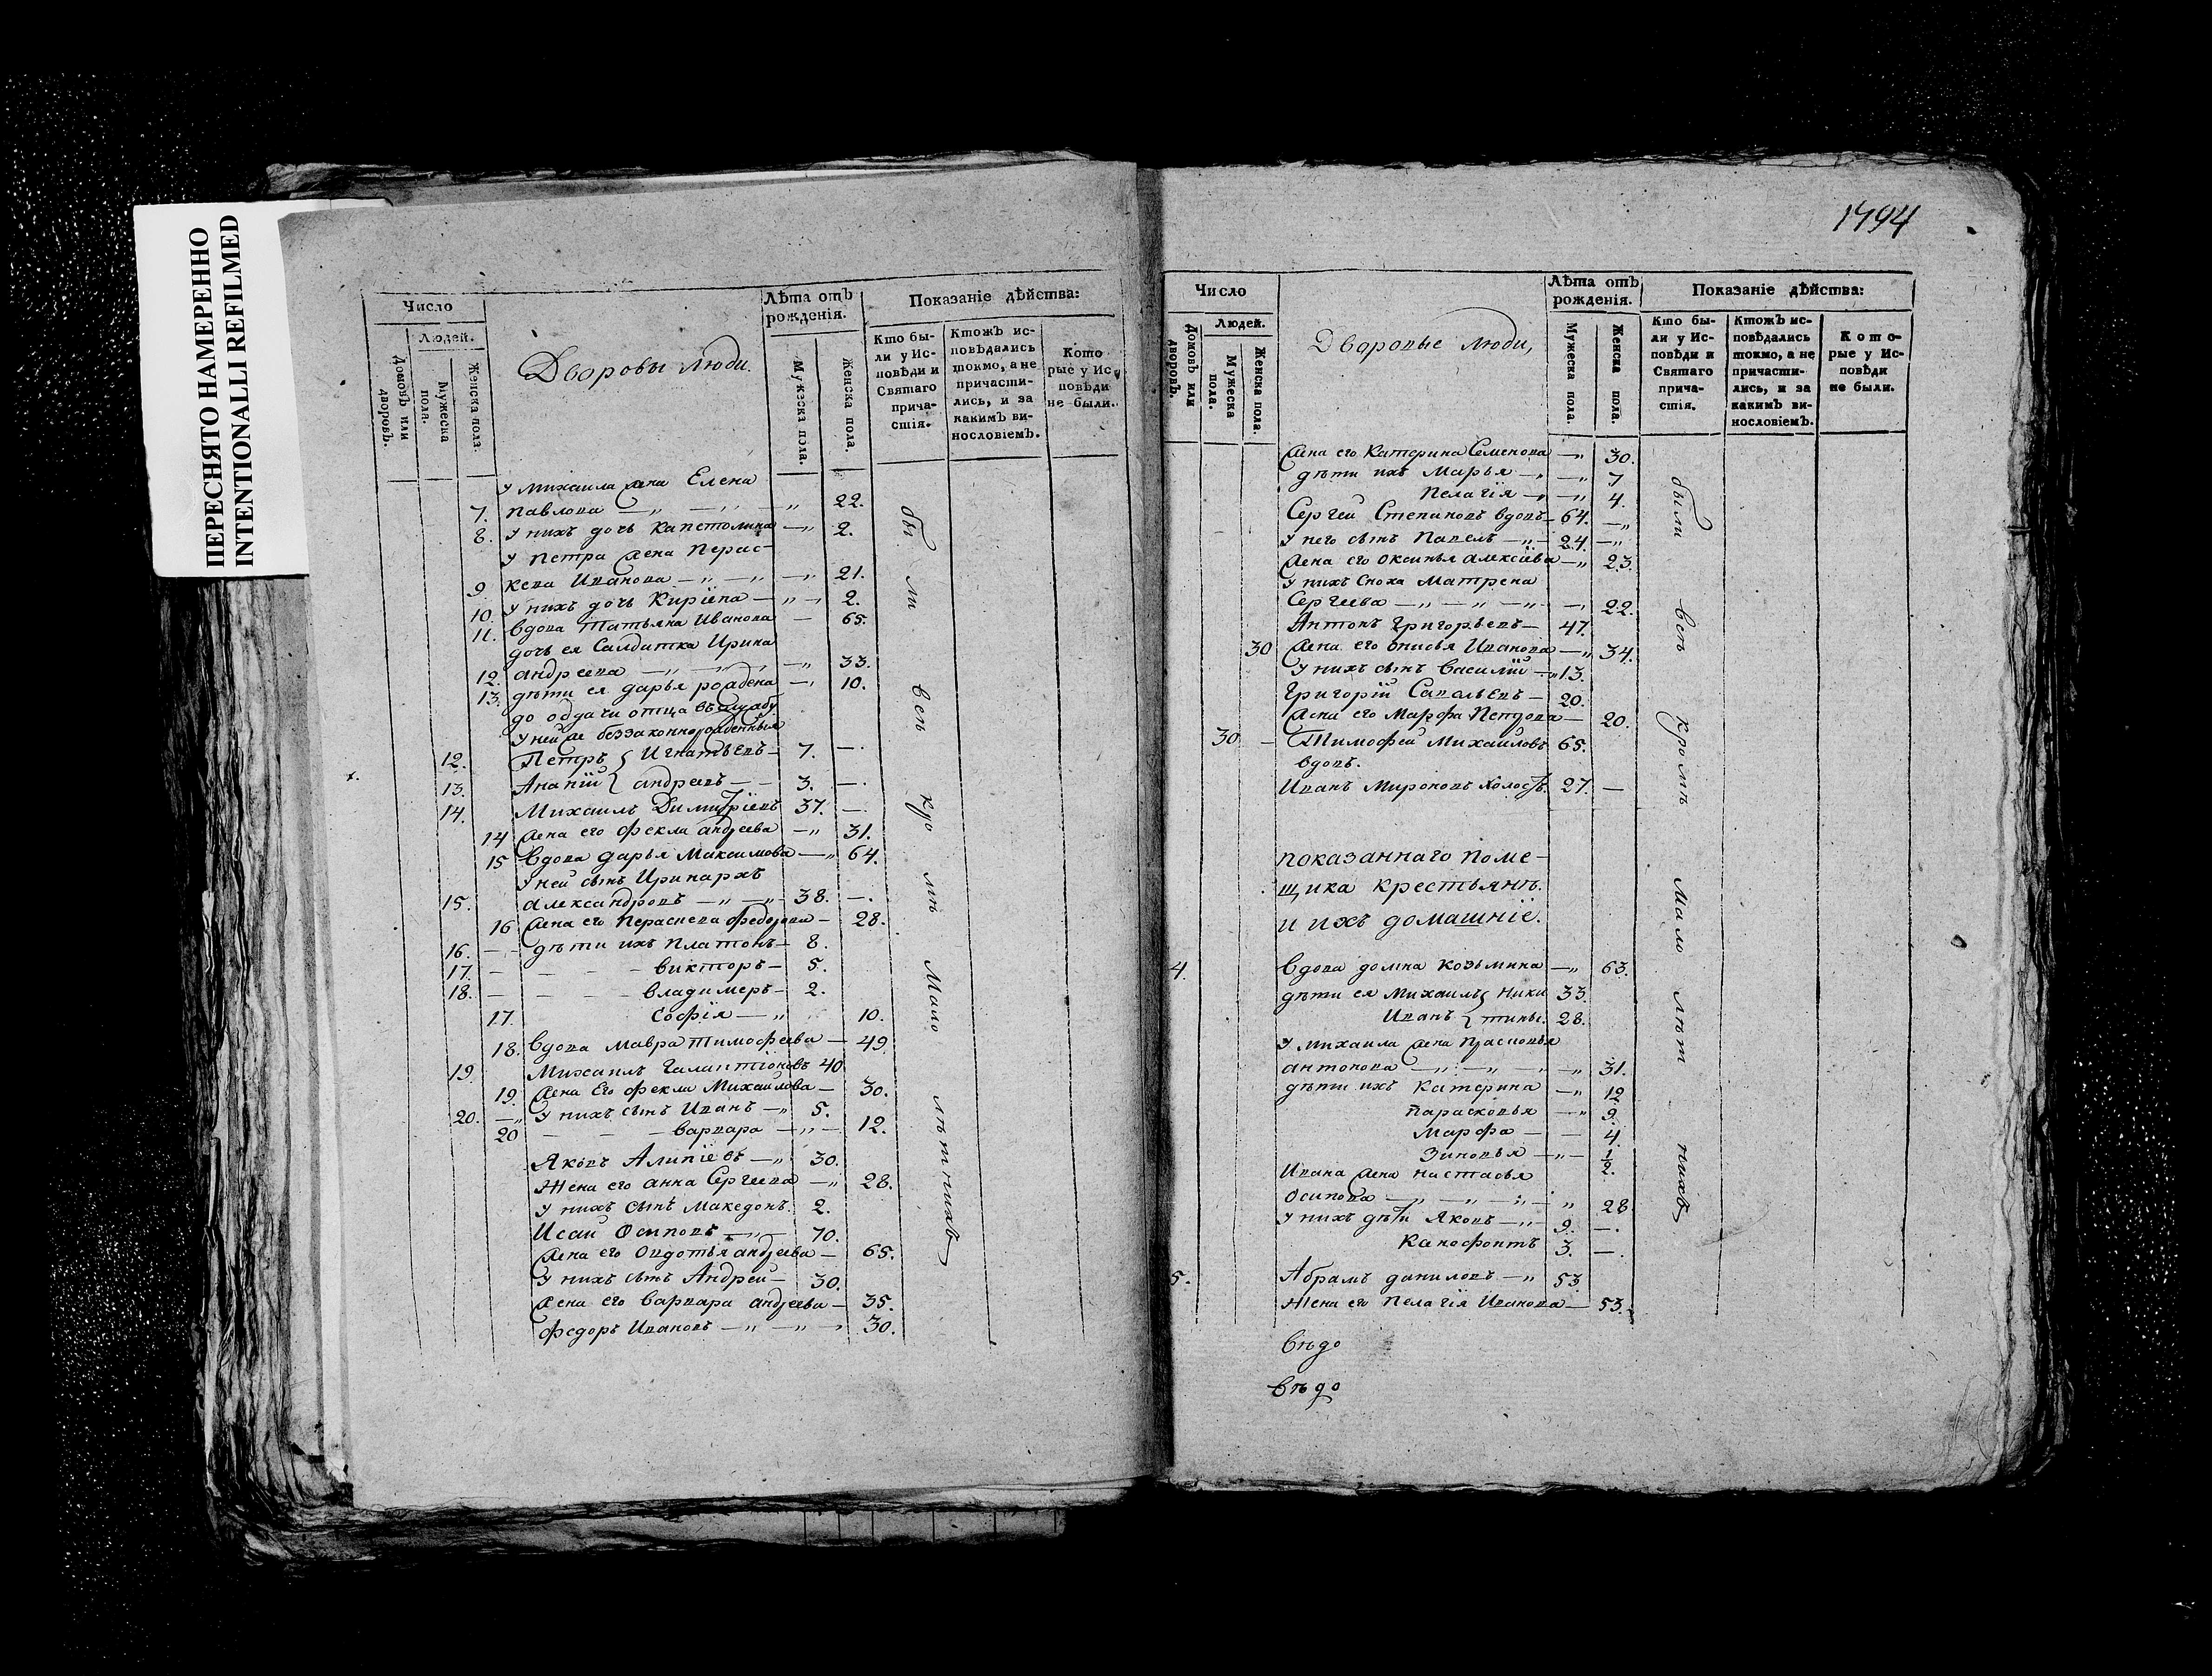 ПЕРЕСНЯТО НАМЕРЕННО
INTENTIONALLI REFILMED
Число
Людей.
Домовъ или дворовъ.
Мужеска пола.
Женска пола.
Дворовы люди.
Лѣта отъ рожденія.
Мужеска пола.
Женска пола.
Показаніе дѣйства:
Кто были у Исповѣди и Святаго причастія.
Ктожъ исповѣдались токмо, а не причастились, и за какимъ винословіемъ.
Которые у Исповѣди не были.
У михаила жена Елена
7. павлова — 22.
8. У нихъ дочь капетолина — 2.
У петра жена перас-
9. кева Иванова — 21.
10. У нихъ дочь Киріена — 2.
11. вдова татьяна Иванова — 65.
дочь ея Салдатка Ирина
12. андреева — 33.
13. дѣти ея дарья рождена — 10.
до отдачи отца въ службу
У ней же беззаконнорожденныя
12. Петръ Игнатьевъ — 7. —
13. Ананій андреевъ — 3. —
14. Михаилъ Димитріевъ 37. —
14 жена его фекла андреева — 31.
15 вдова дарья Максимова — 64.
У ней сынъ Иринархъ
15. александровъ — 38. —
16 жена его Нераскева федорова — 28.
16. — дѣти ихъ платонъ — 8.
17. — викторъ — 5.
18. — владимеръ — 2.
17. Софія — 10.
18. вдова мавра тимофеева — 49
19. Михаилъ Галактіоновъ 40
19. жена Его фекла Михаилова — 30.
20. — У нихъ сынъ Иванъ — 5.
20 — варвара — 12.
Яковъ Алипіевъ — 30.
Жена его анна Сергеева — 28.
У нихъ сынъ Македонъ. 2.
Исаи Осиповъ — 70.
жена его Овдотья андреева — 65.
У нихъ сынъ Андреи — 30.
жена его варвара андреева — 35.
федоръ Ивановъ — 30.
бы ли всѣ кро мѣ Мало лѣтнихъ
1794
Число
Людей.
Домовъ или дворовъ.
Мужеска пола.
Женска пола.
Дворовые люди,
Лѣта отъ рожденія.
Мужеска пола.
Женска пола.
Показаніе дѣйства:
Кто были у Исповѣди и Святаго причастія.
Ктожъ исповѣдались токмо, а не причастились, и за какимъ винословіемъ.
Которые у Исповѣди не были.
жена его Катерина Семенова — 30.
дѣти ихъ Марья — 7
Пелагія — 4.
Сергеи Степановъ вдовъ — 64. —
У него сынъ Павелъ — 24 —
жена его оксинья алексіева — 23.
У нихъ Сноха Матрена
Сергеева — 22.
Антонъ Григорьевъ — 47.
30 жена его Иванова — 34.
У нихъ сынъ Василіи — 13.
Григоріи Савельевъ — 20.
жена его Марфа — 20.
30 — Тимофеи Михаиловъ 65.
вдовъ.
Иванъ Мироновъ холостъ. 27. —
показаннаго поме-
щика крестьянъ.
и ихъ домашніе.
4. вдова домна козьмина — 63.
дѣти ея Михаилъ Ники 33.
Иванъ тины. 28.
У михаила жена прасковья
антонова — 31.
дѣти ихъ Катерина — 12
парасковья — 9.
Марфа — 4
Зиновья — 1/2.
Ивана жена настасья
Осипова — 28
У нихъ дѣти Яковъ — 9. —
Канофонтъ 3. —
5. Абрамъ даниловъ — 53
Жена его пелагія Иванова — 53.
были всѣ кромѣ Мало лѣт нихъ
вѣдо
вѣдо